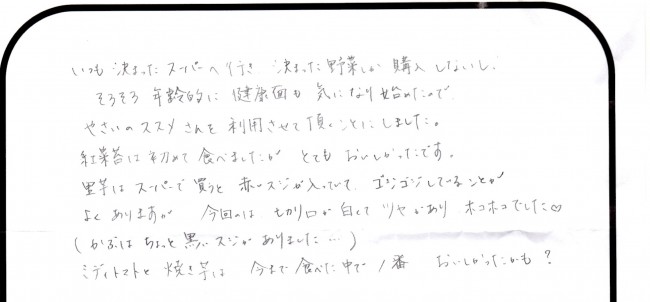 いつも 決まったスーパーへ行き 決まった野菜しか購入しないし、
そろそろ 年齢的に 健康面も 気になり始めたので
やさいのススメさんを利用させて頂くことにしました。
紅菜苔は初めて食べましたが とても おいしかったです。
里芋はスーパーで買うと 赤いスジが入っていて、ゴジゴジしていることが
よくありますが 今回のは 切り口が白くて ツヤがあり ホコホコでした♡
(かぶは ちょっと 黒いスジがありました…)
ミディトマトと 焼き芋は 今まで食べた中で 1番 おいしかったかも?